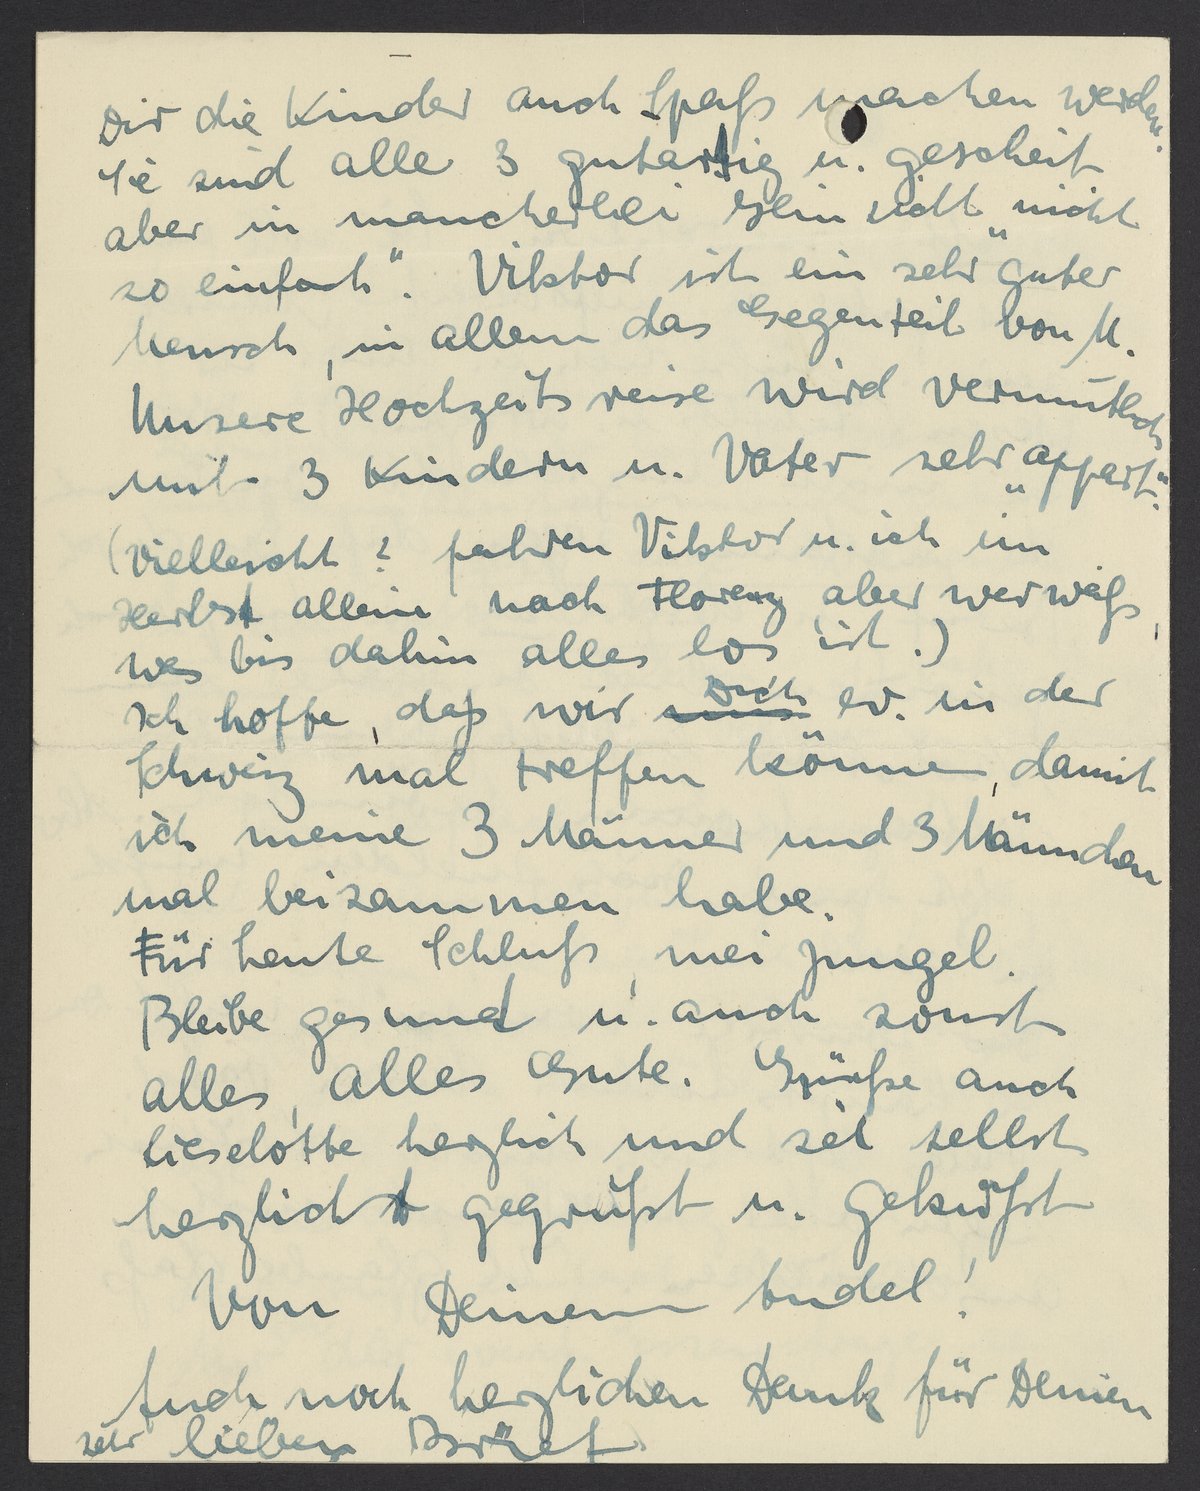 Dir die Kinder auch Spaß machen werden.
Sie sind alle 3 gutartig u. gescheit
aber in mancherlei Hinsicht nicht
so einfach". Viktor ist ein sehr "guter
Mensch, in allem das Gegenteil von M.
Unsere Hochzeitsreise wird vermutlich
mit 3 Kindern u. Vater sehr "appart".
(Vielleicht ? fahren Viktor u. ich im
Herbst allein nach Florenz aber wer weiß,
was bis dahin alles los ist.)
Ich hoffe, daß wir Dich ev. in der
Schweiz mal treffen können, damit
ich meine 3 Männer und 3 Männchen
mal beisammen habe.
Für heute Schluß, mei Jungel.
Bleibe gesund u. auch sonst
alles, alles Gute. Grüße auch
Lieselotte herzlich und sei selbst
herzlichst gegrüßt u. geküßt
Von Deinem Budel!
Auch noch herzlichen Dank für Deinen
sehr lieben Brief.